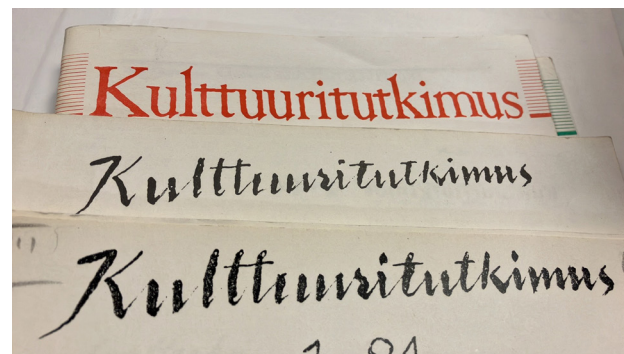 Kulttuuritutkimus
Kulttuuritutkimus
Kulttuuritutkimus